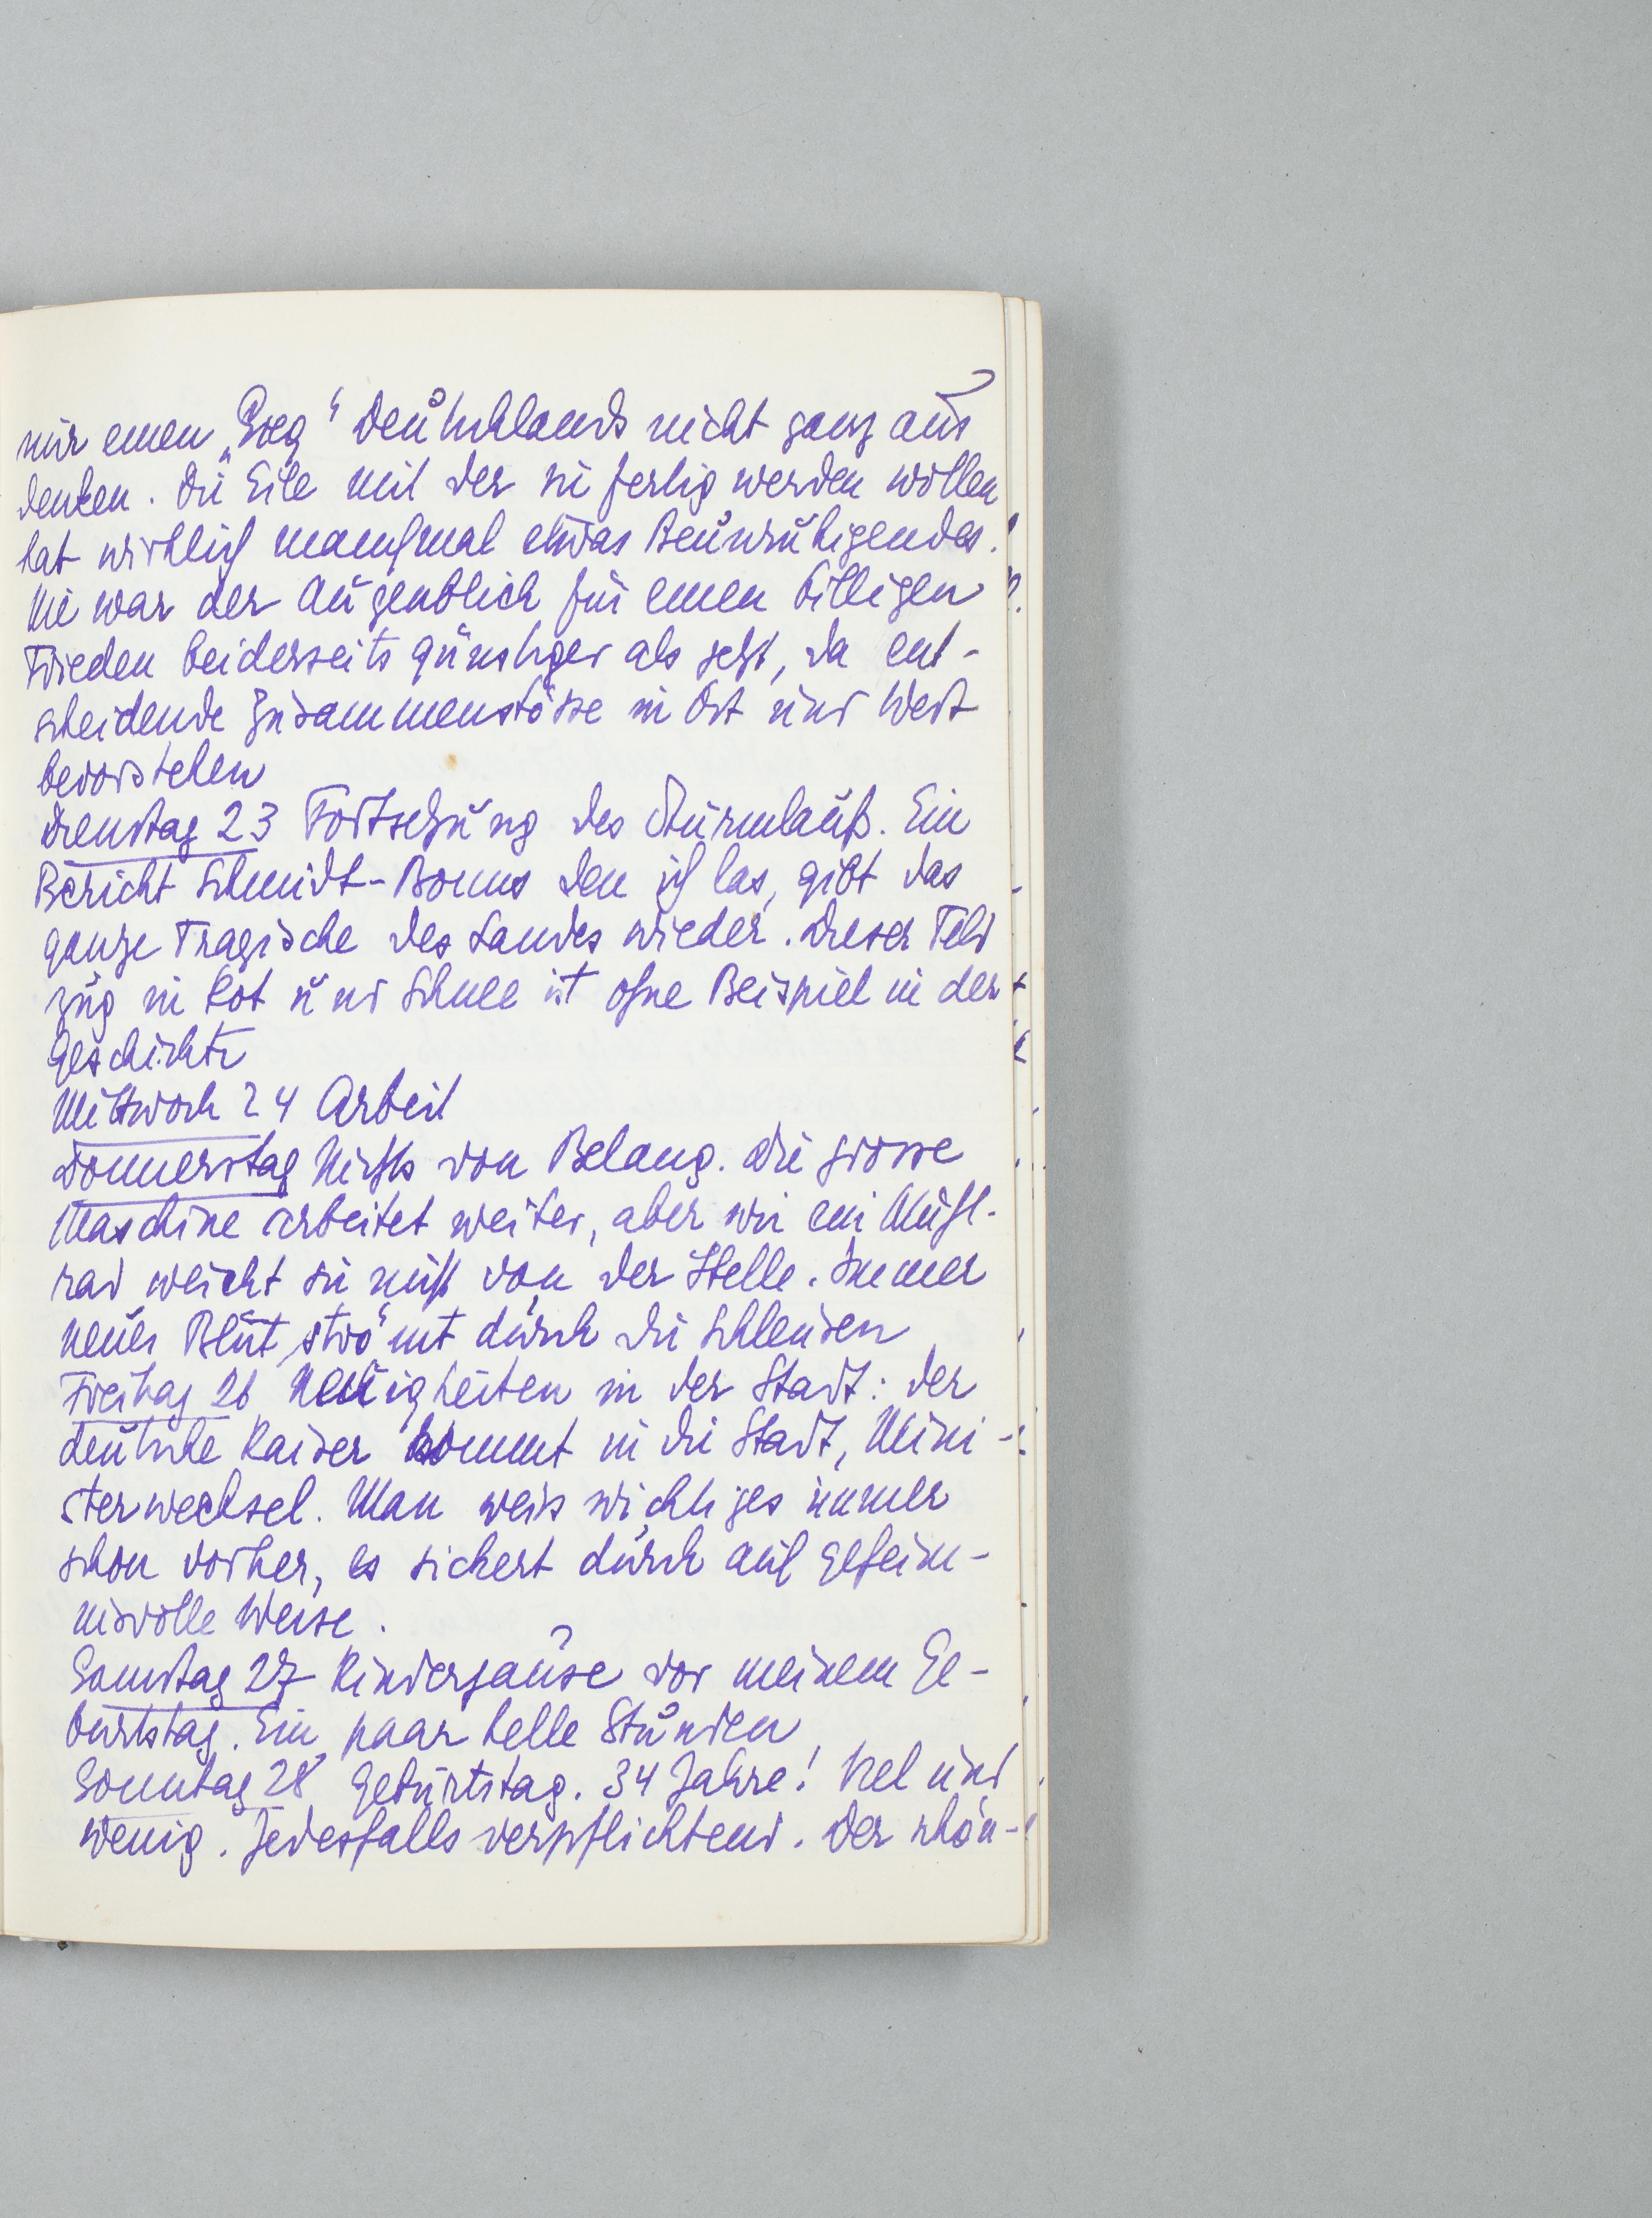 mir einen „Sieg“ Deutschlands nicht ganz aus
denken. Die Eile mit der sie fertig werden wollen
hat wirklich manchmal etwas Beunruhigendes.
Nie war der Augenblick für einen billigen
Frieden beiderseits günstiger als jetzt, da ent-
scheidende Zusammenstösse in Ost und West
bevorstehen
Dienstag 23 Fortsetzung des Sturmlaufs. Ein
Bericht Schmidt-Bonns den ich las, gibt das
ganze Tragische des Landes wieder. Dieser Feld
zug in Kot und Schnee ist ohne Beispiel in der
Geschichte
Mittwoch 24 Arbeit
Donnerstag Nichts von Belang. Die grosse
Maschine arbeitet weiter, aber wie ein Mühl-
rad weicht sie nicht von der Stelle. Immer
neues Blut strömt durch die Schleusen
Freitag 26 Neuigkeiten in der Stadt: der
deutsche Kaiser kommt in die Stadt, Mini-
sterwechsel. Man weis wichtiges immer
schon vorher, es sickert durch auf geheim-
nisvolle Weise.
Samstag 27 Kinderjause vor meinem Ge-
burtstag. Ein paar helle Stunden
Sonntag 28 Geburtstag. 34 Jahre! Viel und
wenig. Jedesfalls verpflichtend. Der schön-